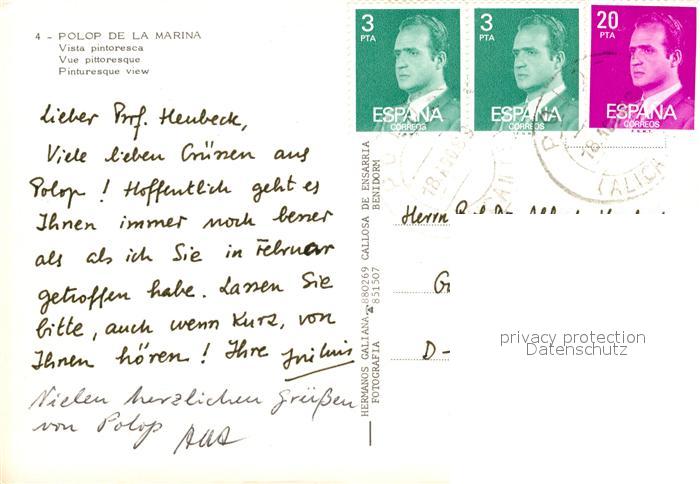 4 - POLOP DE LA MARINA
Vista pintoresca
Vue pittoresque
Pinturesque view
Lieber Prof. Heubeck,
Viele lieben Grüssen aus
Polop! Hoffentlich geht es
Ihnen immer noch besser
als als ich Sie in Februar
getroffen habe. Lassen Sie
bitte, auch wenn kurz, von
Ihnen hören! Ihre
Vielen herzlichen Grüßen
von Polop
HERMANOS GALIANA - 880269 CALLOSA DE ENSARRIA
FOTOGRAFIA 851507 BENIDORM
3
PTA
ESPAÑA
CORREOS
3
PTA
ESPAÑA
CORREOS
20
PTA
ESPAÑA
CORREOS
F.N.M.T.
(ALICA
Herrn
D-
privacy protection
Datenschutz